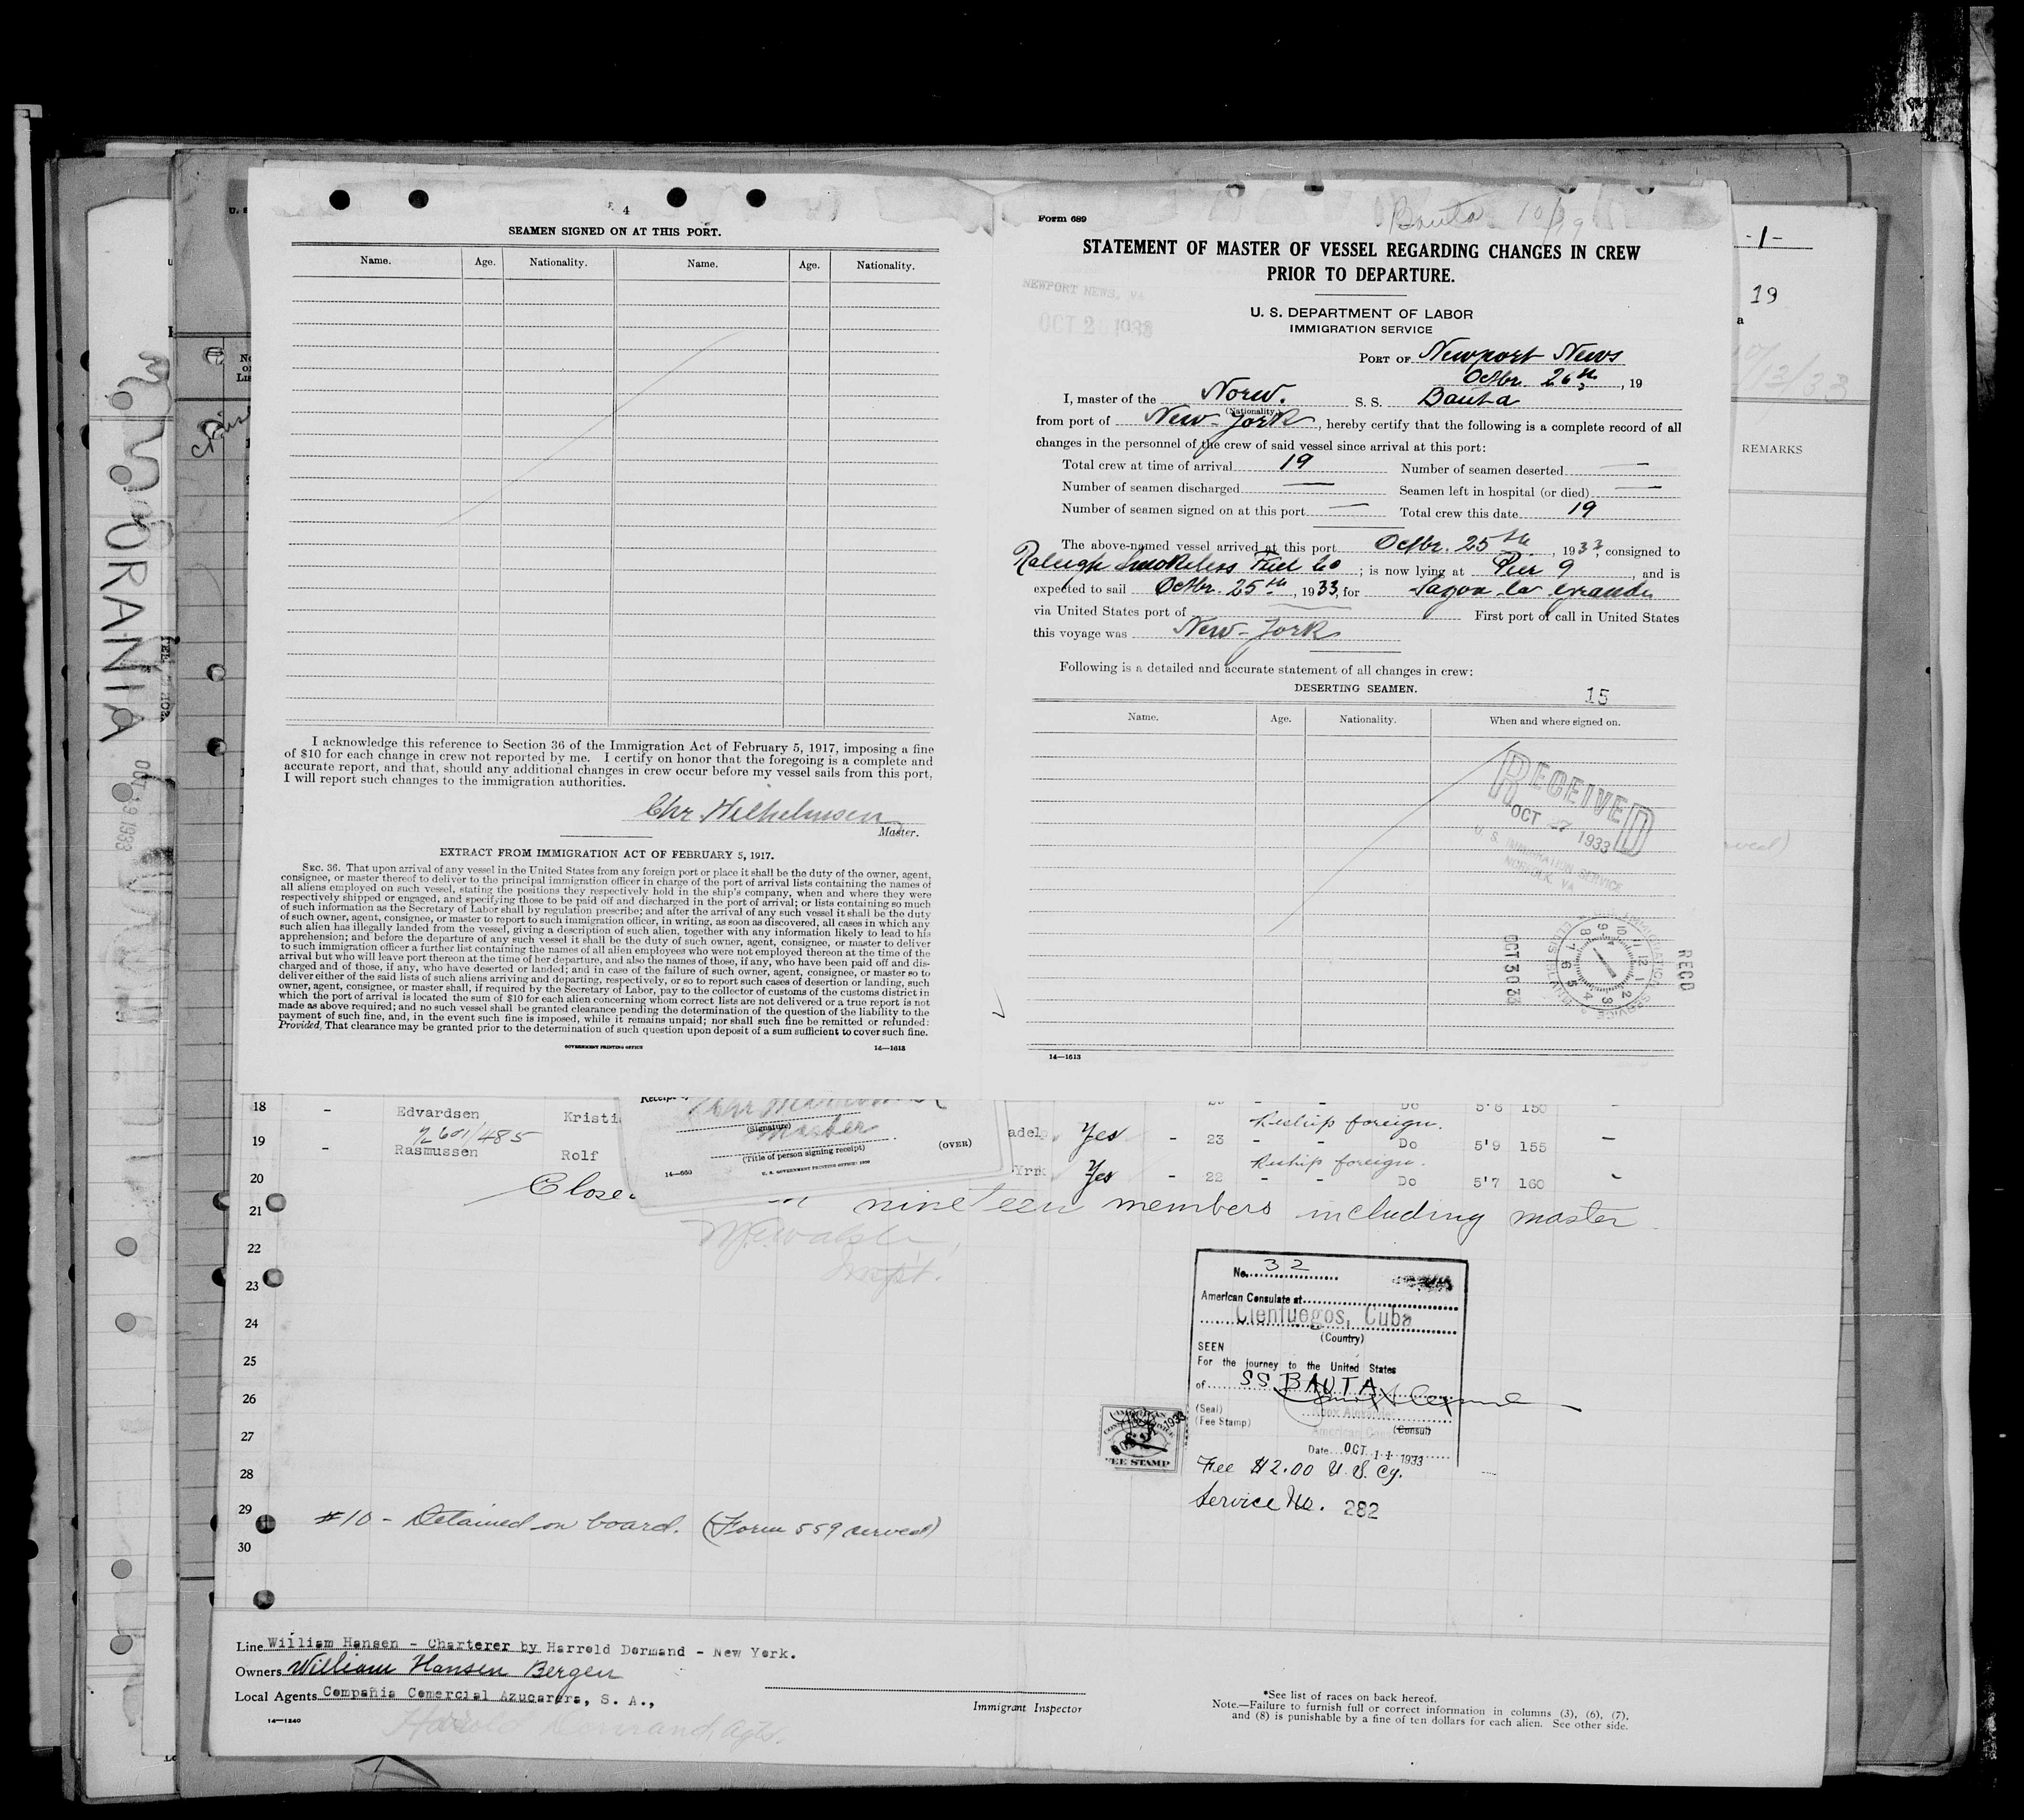 4
SEAMEN SIGNED ON AT THIS PORT.
Name. Age. Nationality. Name. Age. Nationality.
I acknowledge this reference to Section 36 of the Immigration Act of February 5, 1917, imposing a fine
of $10 for each change in crew not reported by me. I certify on honor that the foregoing is a complete and
accurate report, and that, should any additional changes in crew occur before my vessel sails from this port,
I will report such changes to the immigration authorities.
Chr. Wilhelmsen
Master.
EXTRACT FROM IMMIGRATION ACT OF FEBRUARY 5, 1917.
SEC. 36. That upon arrival of any vessel in the United States from any foreign port or place it shall be the duty of the owner, agent,
consignee, or master thereof to deliver to the principal immigration officer in charge of the port of arrival lists containing the names of
all aliens employed on such vessel, stating the positions they respectively hold in the ship's company, when and where they were
respectively shipped or engaged, and specifying those to be paid off and discharged in the port of arrival; or lists containing so much
of such information as the Secretary of Labor shall by regulation prescribe; and after the arrival of any such vessel it shall be the duty
of such owner, agent, consignee, or master to report to such immigration officer, in writing, as soon as discovered, all cases in which any
such alien has illegally landed from the vessel, giving a description of such alien, together with any information likely to lead to his
apprehension; and before the departure of any such vessel it shall be the duty of such owner, agent, consignee, or master to deliver
to such immigration officer a further list containing the names of all alien employees who were not employed thereon at the time of the
arrival but who will leave port thereon at the time of her departure, and also the names of those, if any, who have been paid off and dis-
charged and of those, if any, who have deserted or landed; and in case of the failure of such owner, agent, consignee, or master so to
deliver either of the said lists of such aliens arriving and departing, respectively, or so to report such cases of desertion or landing, such
owner, agent, consignee, or master shall, if required by the Secretary of Labor, pay to the collector of customs of the customs district in
which the port of arrival is located the sum of $10 for each alien concerning whom correct lists are not delivered or a true report is not
made as above required; and no such vessel shall be granted clearance pending the determination of the question of the liability to the
payment of such fine, and, in the event such fine is imposed, while it remains unpaid; nor shall such fine be remitted or refunded:
Provided, That clearance may be granted prior to the determination of such question upon deposit of a sum sufficient to cover such fine.
GOVERNMENT PRINTING OFFICE 14—1613
Form 689
Bauta 10/19
STATEMENT OF MASTER OF VESSEL REGARDING CHANGES IN CREW
PRIOR TO DEPARTURE.
NEWPORT NEWS, VA
OCT 26 1933
U. S. DEPARTMENT OF LABOR
IMMIGRATION SERVICE
PORT OF Newport News
Octbr. 26th, 19
I, master of the Norw. S. S. Bauta
(Nationality)
from port of New-York, hereby certify that the following is a complete record of all
changes in the personnel of the crew of said vessel since arrival at this port:
Total crew at time of arrival 19 Number of seamen deserted —
Number of seamen discharged — Seamen left in hospital (or died) —
Number of seamen signed on at this port — Total crew this date 19
The above-named vessel arrived at this port Octbr. 25th, 1933, consigned to
Raleigh Smokeless Fuel Co; is now lying at Pier 9, and is
expected to sail Octbr. 25th, 1933, for Sagua la Grande
via United States port of First port of call in United States
this voyage was New-York
Following is a detailed and accurate statement of all changes in crew:
DESERTING SEAMEN. 15
Name. Age. Nationality. When and where signed on.
RECEIVED
OCT 27 1933
U. S. IMMIGRATION SERVICE
NORFOLK, VA
OCT 30 33
RECD
14—1613
-1-
19
10/13/33
REMARKS
ORANIA
OCT 19 1933
18 - Edvardsen Kristi Do 5'8 150 -
Reship foreign.
19 92601/485 - Rasmussen Rolf Yes - 23 - - Do 5'9 155 -
Reship foreign.
20 Yes - 22 - - Do 5'7 160 -
(Signature)
Master
(Title of person signing receipt) (OVER)
14—660 U. S. GOVERNMENT PRINTING OFFICE
21 nineteen members including master
22
Inspt.
23
24
25
26
27
28
29 #10 - Detained on board. (Form 559 served)
30
No. 32
American Consulate at
Cienfuegos, Cuba
(Country)
SEEN
For the journey to the United States
of SS BAUTA
(Seal)
(Fee Stamp)
Knox Alexander
(Consul)
Date OCT 11 1933
FEE STAMP
Fee $2.00 U.S. Cy.
Service No. 282
Line William Hansen - Charterer by Harreld Dormand - New York.
Owners William Hansen Bergen
Local Agents Compañia Comercial Azucarera, S. A.,
14—1240
Immigrant Inspector
*See list of races on back hereof.
Note.—Failure to furnish full or correct information in columns (3), (6), (7),
and (8) is punishable by a fine of ten dollars for each alien. See other side.